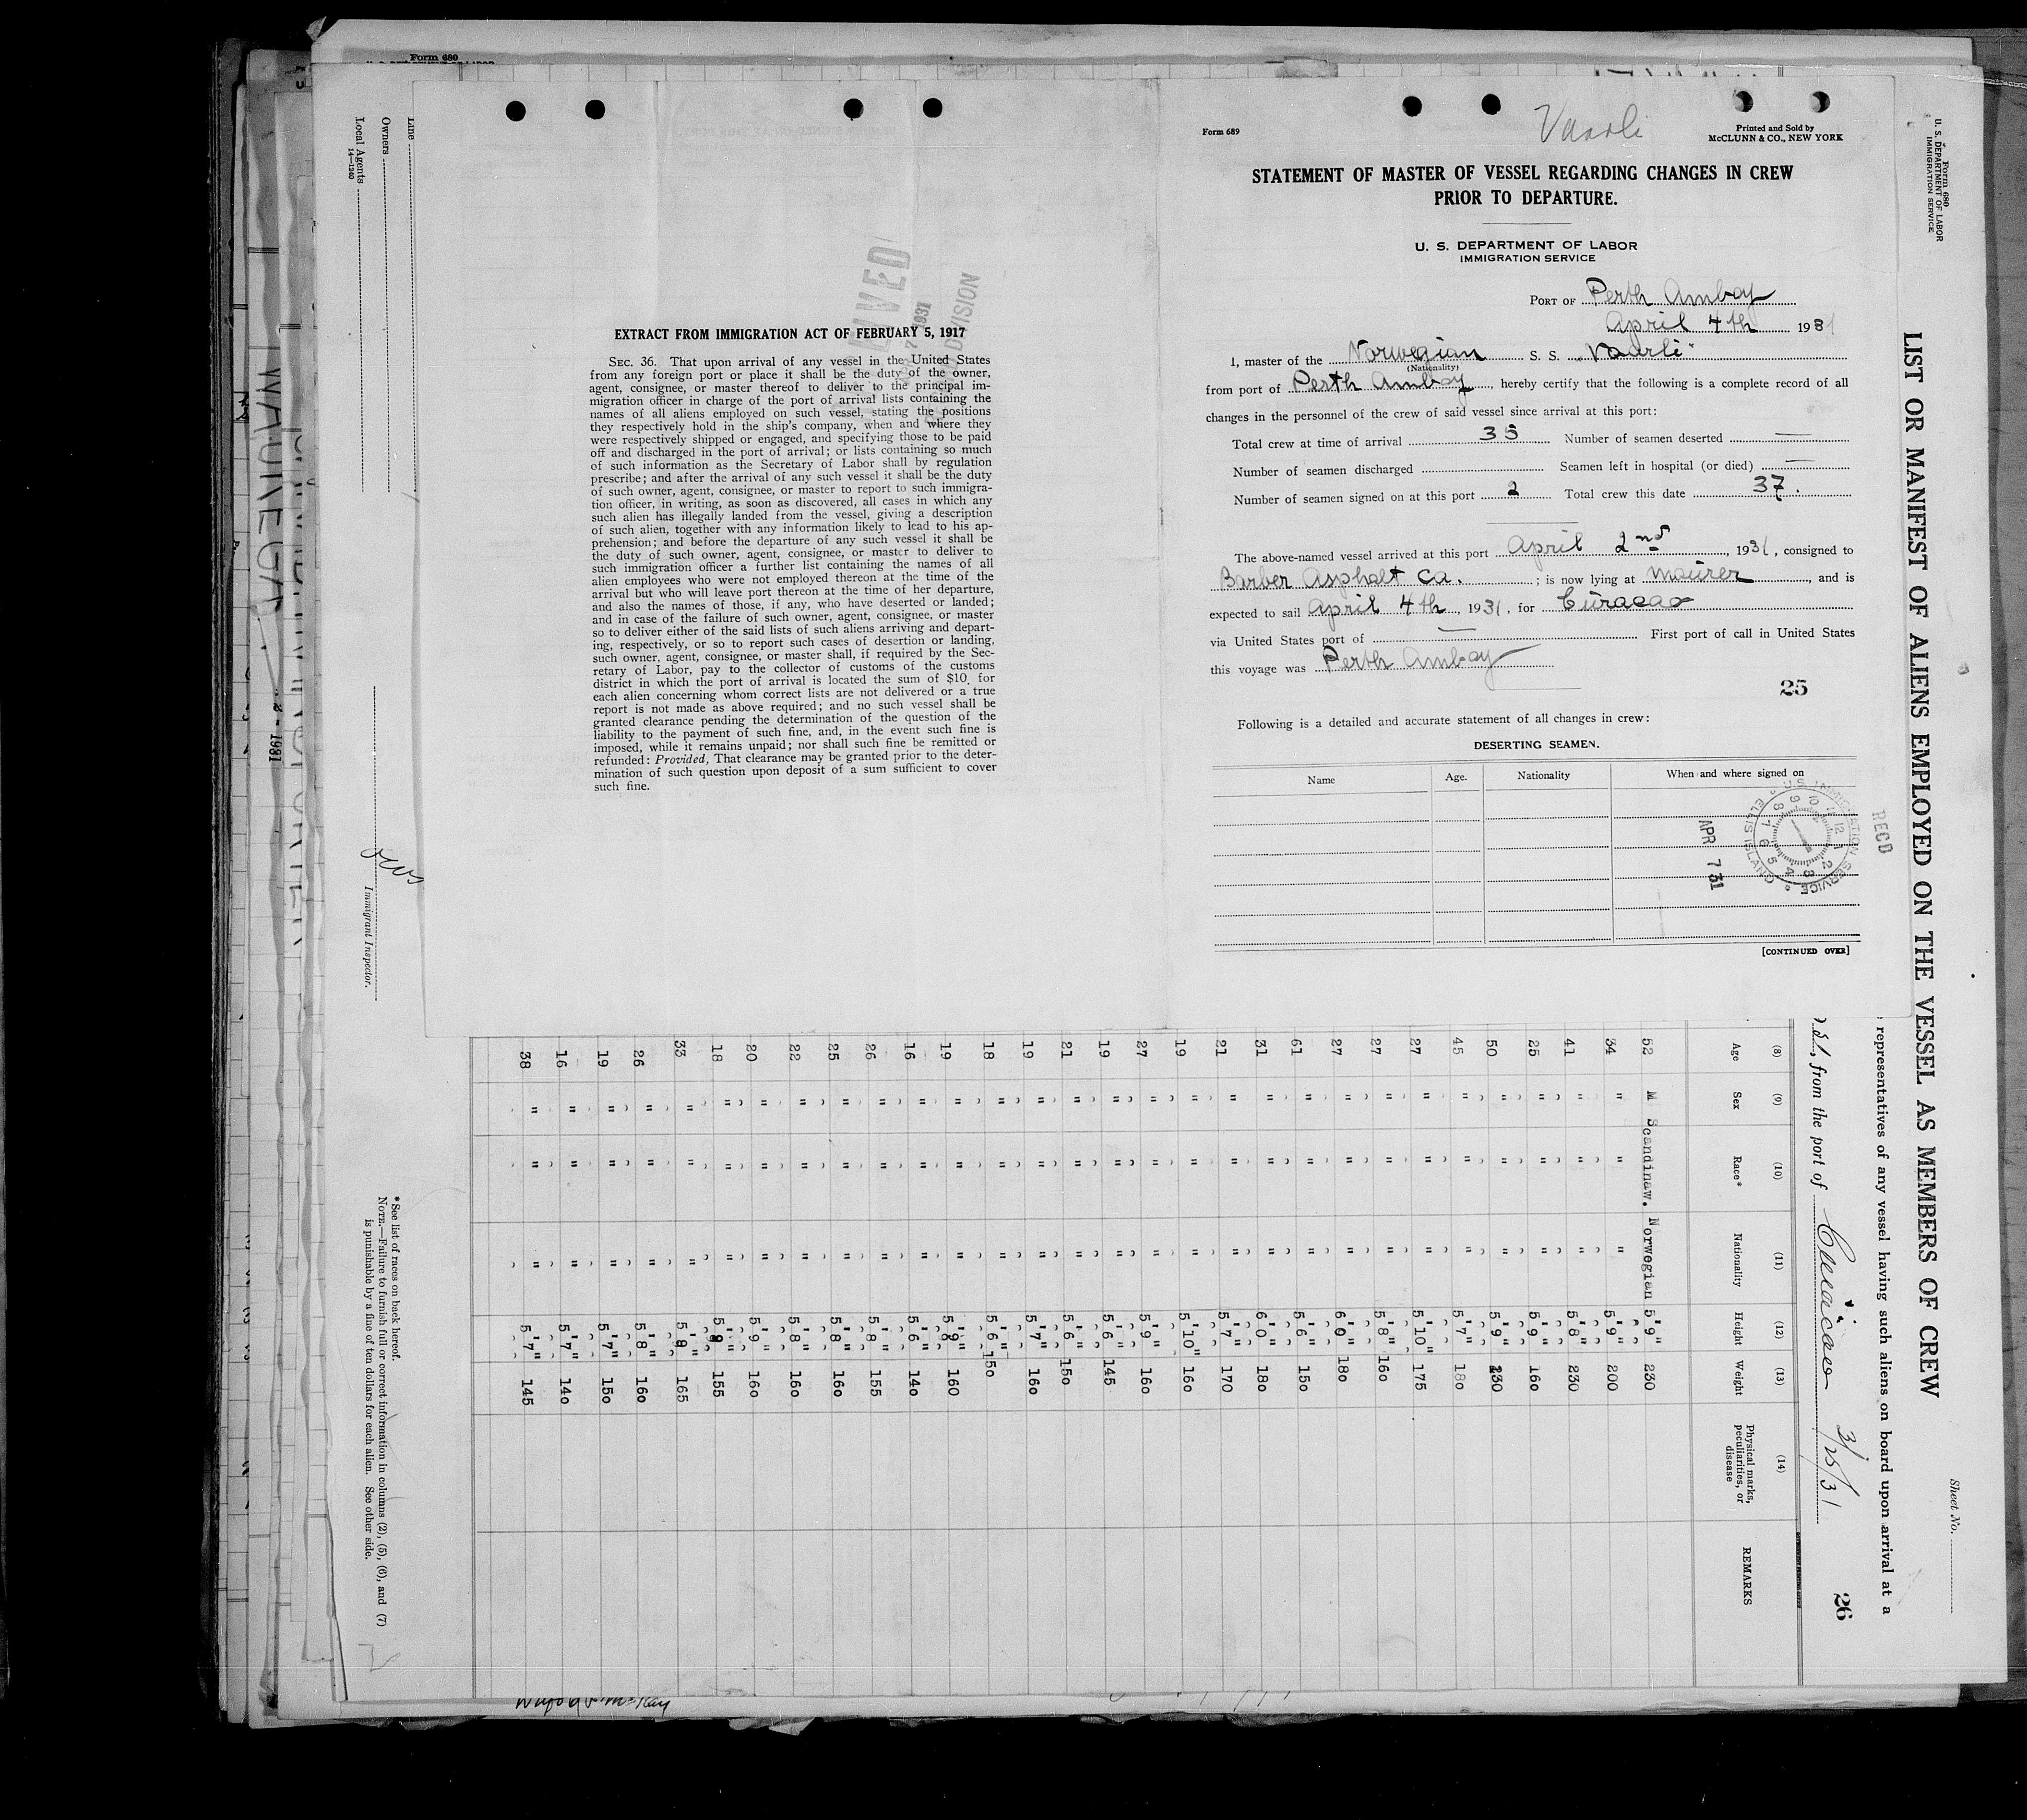 Form 680
Line
Owners
Local Agents
14—1240
Immigrant Inspector.
EXTRACT FROM IMMIGRATION ACT OF FEBRUARY 5, 1917
SEC. 36. That upon arrival of any vessel in the United States
from any foreign port or place it shall be the duty of the owner,
agent, consignee, or master thereof to deliver to the principal im-
migration officer in charge of the port of arrival lists containing the
names of all aliens employed on such vessel, stating the positions
they respectively hold in the ship's company, when and where they
were respectively shipped or engaged, and specifying those to be paid
off and discharged in the port of arrival; or lists containing so much
of such information as the Secretary of Labor shall by regulation
prescribe; and after the arrival of any such vessel it shall be the duty
of such owner, agent, consignee, or master to report to such immigra-
tion officer, in writing, as soon as discovered, all cases in which any
such alien has illegally landed from the vessel, giving a description
of such alien, together with any information likely to lead to his ap-
prehension; and before the departure of any such vessel it shall be
the duty of such owner, agent, consignee, or master to deliver to
such immigration officer a further list containing the names of all
alien employees who were not employed thereon at the time of the
arrival but who will leave port thereon at the time of her departure,
and also the names of those, if any, who have deserted or landed;
and in case of the failure of such owner, agent, consignee, or master
so to deliver either of the said lists of such aliens arriving and depart-
ing, respectively, or so to report such cases of desertion or landing,
such owner, agent, consignee, or master shall, if required by the Sec-
retary of Labor, pay to the collector of customs of the customs
district in which the port of arrival is located the sum of $10 for
each alien concerning whom correct lists are not delivered or a true
report is not made as above required; and no such vessel shall be
granted clearance pending the determination of the question of the
liability to the payment of such fine, and, in the event such fine is
imposed, while it remains unpaid; nor shall such fine be remitted or
refunded: Provided, That clearance may be granted prior to the deter-
mination of such question upon deposit of a sum sufficient to cover
such fine.
7 1931
DIVISION
Form 689
Vaarli
Printed and Sold by
McCLUNN & CO., NEW YORK
STATEMENT OF MASTER OF VESSEL REGARDING CHANGES IN CREW
PRIOR TO DEPARTURE.
U. S. DEPARTMENT OF LABOR
IMMIGRATION SERVICE
PORT OF Perth Amboy
April 4th 1931
I, master of the Norwegian S. S. "Vaarli"
(Nationality)
from port of Perth Amboy, hereby certify that the following is a complete record of all
changes in the personnel of the crew of said vessel since arrival at this port:
Total crew at time of arrival 35 Number of seamen deserted —
Number of seamen discharged Seamen left in hospital (or died) —
Number of seamen signed on at this port 2 Total crew this date 37.
The above-named vessel arrived at this port April 2nd, 1931, consigned to
Barber Asphalt Co.; is now lying at Maurer, and is
expected to sail April 4th, 1931, for Curacao
via United States port of — First port of call in United States
this voyage was Perth Amboy
25
Following is a detailed and accurate statement of all changes in crew:
DESERTING SEAMEN.
Name Age. Nationality When and where signed on
U.S. IMMIGRATION SERVICE ELLIS ISLAND
RECD
APR 7 31
[CONTINUED OVER]
Form 680
U. S. DEPARTMENT OF LABOR
IMMIGRATION SERVICE
Sheet No.
LIST OR MANIFEST OF ALIENS EMPLOYED ON THE VESSEL AS MEMBERS OF CREW
representatives of any vessel having such aliens on board upon arrival at a
, from the port of Curacao 3/25/31
26
(8) (9) (10) (11) (12) (13) (14)
Age Sex Race* Nationality Height Weight Physical marks, peculiarities, or disease REMARKS
52 M Scandinaw. Norwegian 5'9" 230
34 " " " 5'9" 200
41 " " " 5'8" 230
25 " " " 5'9" 160
50 " " " 5'9" 130
45 " " " 5'7" 180
27 " " " 5'10" 175
27 " " " 5'8" 160
27 " " " 6'0" 180
61 " " " 5'6" 150
31 " " " 6'0" 180
21 " " " 5'7" 170
19 " " " 5'10" 160
27 " " " 5'9" 160
19 " " " 5'6" 145
21 " " " 5'6" 150
19 " " " 5'7" 160
18 " " " 5'6" 150
19 " " " 5'9" 160
16 " " " 5'6" 140
26 " " " 5'8" 155
25 " " " 5'8" 160
22 " " " 5'8" 160
20 " " " 5'9" 160
18 " " " 5'9" 155
33 " " " 5'8" 165
26 " " " 5'8" 160
19 " " " 5'7" 150
16 " " " 5'7" 140
38 " " " 5'7" 145
*See list of races on back hereof.
NOTE.—Failure to furnish full or correct information in columns (2), (5), (6), and (7)
is punishable by a fine of ten dollars for each alien. See other side.